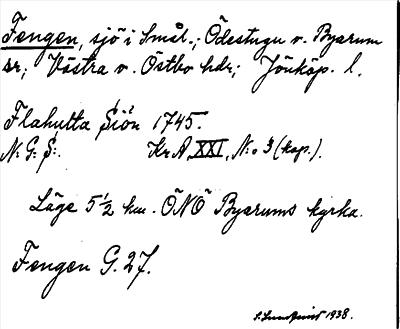 Fengen, sjö i Smål.; Ödestugu o. Byarum
sr; Västra o. Östbo hdr; Jönköp. l.
Flahutta Siön 1745.
N: G: S:. Kr. A, XXI, N:o 3 (kop.).
Läge 5½ km. ÖNÖ Byarums kyrka.
Fengen G. 27.
S. Lundqvist 1938.